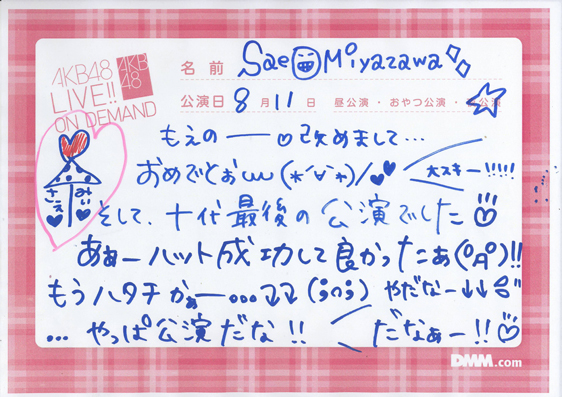 AKB48
LIVE!!
ON DEMAND
AKB
48
名前 Sae Miyazawa
公演日 8月11日 昼公演・おやつ公演・夜公演
もえの——♡改めまして…
おめでとぉωω(*´∀`*)/♥♥
大スキー!!!!!
さえ みぃ
そして、十代最後の公演でした♡
あぁーハット成功して良かったこぁ(°Д°)!!
もうハタチかぁー…↴↴(;∩;)やだなー↓↓
…やっぱ公演だな!!
だなぁー!!♡
DMM.com